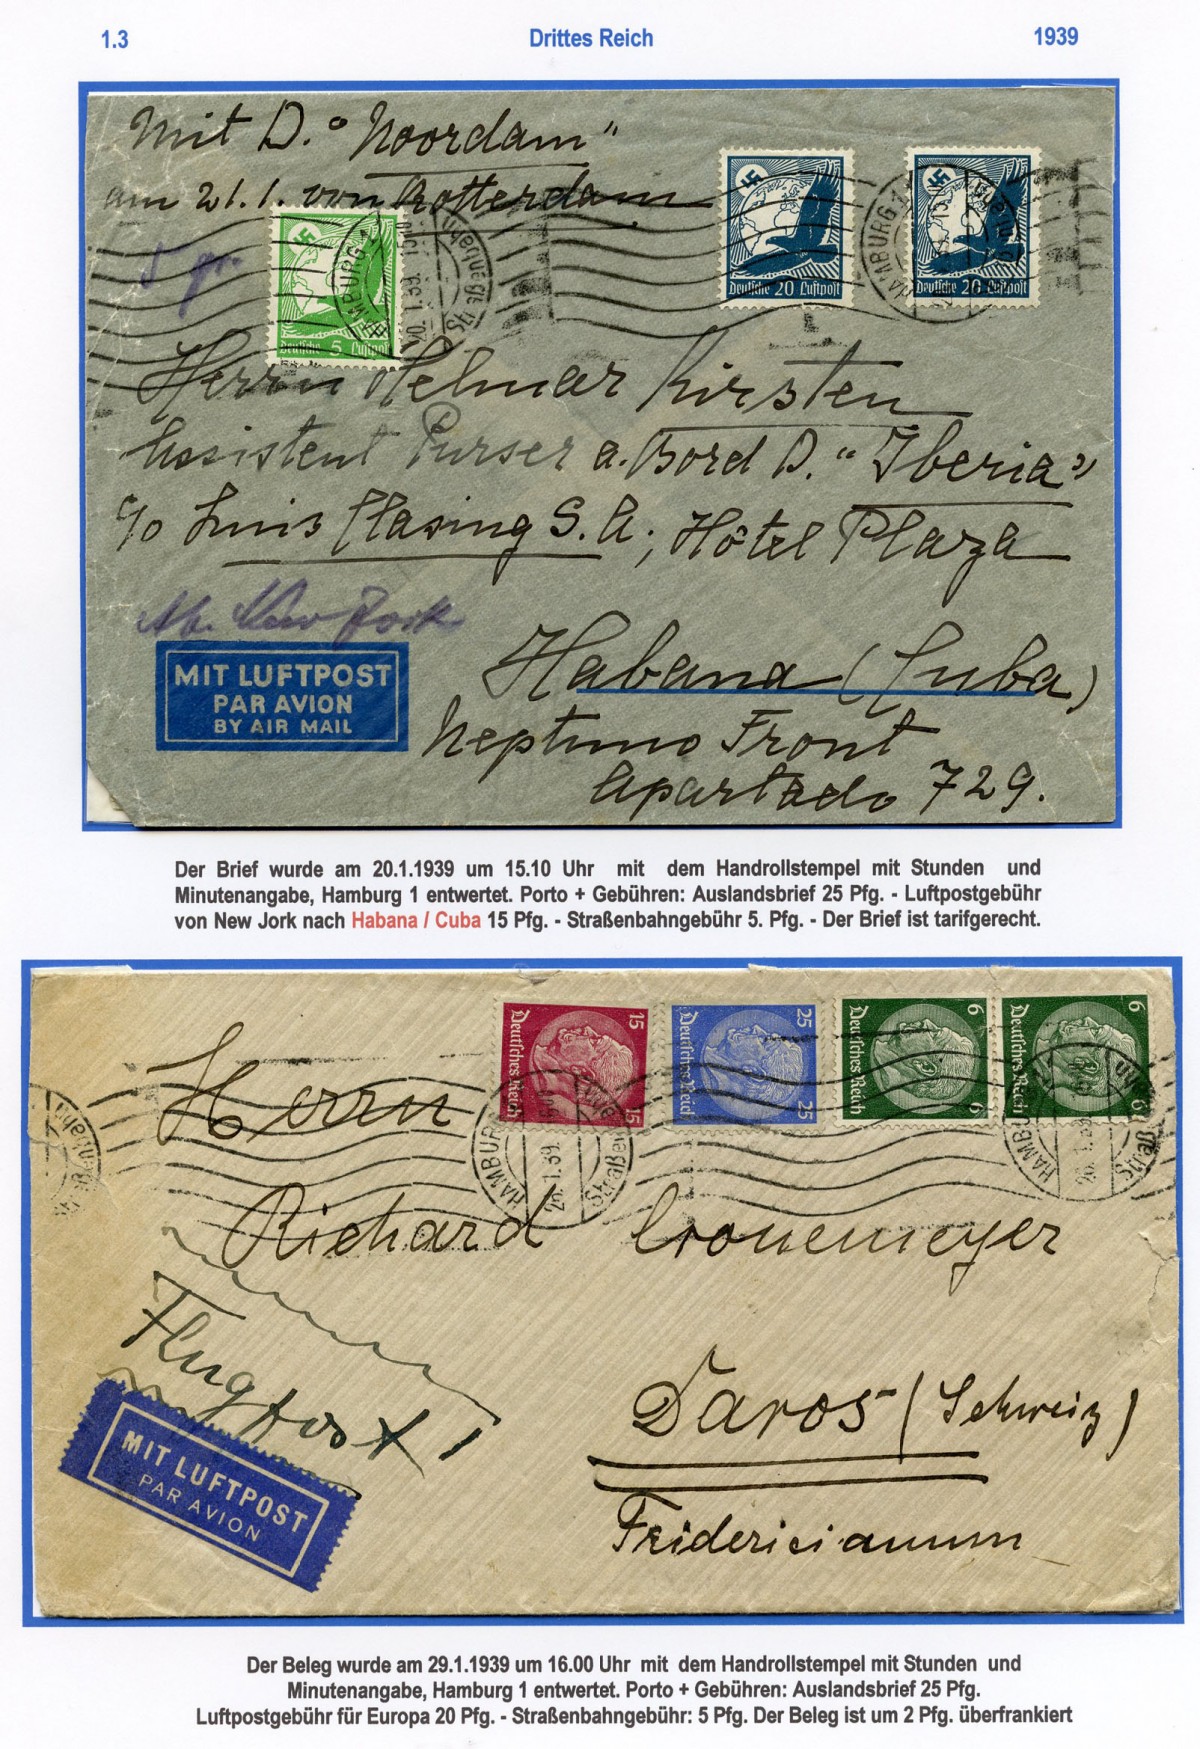 1.3 Drittes Reich 1939
Mit D. "Noordam"
am 21.1. von Rotterdam
5 gr.
Deutsche 5 Luftpost
Deutsche 20 Luftpost
Deutsche 20 Luftpost
HAMBURG 1
Straßenbahn
HAMBURG 1
Herrn Helmar Kirsten
Assistent Purser a. Bord D. "Iberia"
c/o Luis Clasing S.A; Hôtel Plaza
Ab. New York
MIT LUFTPOST
PAR AVION
BY AIR MAIL
Habana (Cuba)
Neptuno Front
Apartado 729.
Der Brief wurde am 20.1.1939 um 15.10 Uhr mit dem Handrollstempel mit Stunden und
Minutenangabe, Hamburg 1 entwertet. Porto + Gebühren: Auslandsbrief 25 Pfg. - Luftpostgebühr
von New Jork nach Habana / Cuba 15 Pfg. - Straßenbahngebühr 5. Pfg. - Der Brief ist tarifgerecht.
Deutsches Reich 15 15
Deutsches Reich 25 25
Deutsches Reich 6 6
Deutsches Reich 6 6
HAMBURG
Straßenbahn
HAMBURG
Straßenbahn
Herrn
Richard Cronemeyer
Flugpost!
MIT LUFTPOST
PAR AVION
Davos (Schweiz)
Fridericianum
Der Beleg wurde am 29.1.1939 um 16.00 Uhr mit dem Handrollstempel mit Stunden und
Minutenangabe, Hamburg 1 entwertet. Porto + Gebühren: Auslandsbrief 25 Pfg.
Luftpostgebühr für Europa 20 Pfg. - Straßenbahngebühr: 5 Pfg. Der Beleg ist um 2 Pfg. überfrankiert